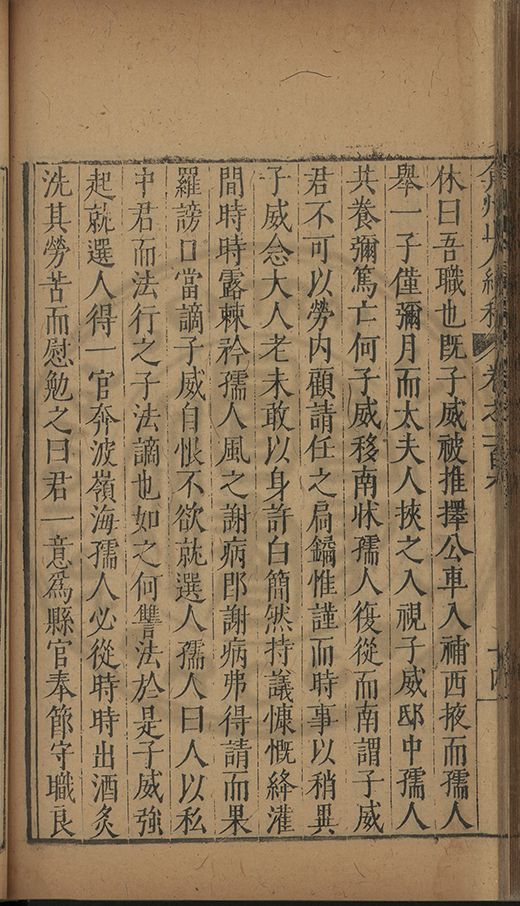 休曰吾職也既子威被推擇公車入補西掖而孺人
舉一子僅彌月而太夫人挾之入視子威邸中孺人
共養彌篤亡何子威移南牀孺人復從而南謂子威
君不可以勞內顧請任之扃鐍惟謹而時事以稍異
子威念大人老未敢以身許白簡然持議慷慨絳灌
間時時露棘矜孺人風之謝病即謝病弗得請而果
羅謗口當謫子威自恨不欲就選人孺人曰人以私
中君而法行之子法謫也如之何讐法於是子威強
起就選人得一官奔波嶺海孺人必從時時出酒炙
洗其勞苦而慰勉之曰君一意為縣官奉節守職良